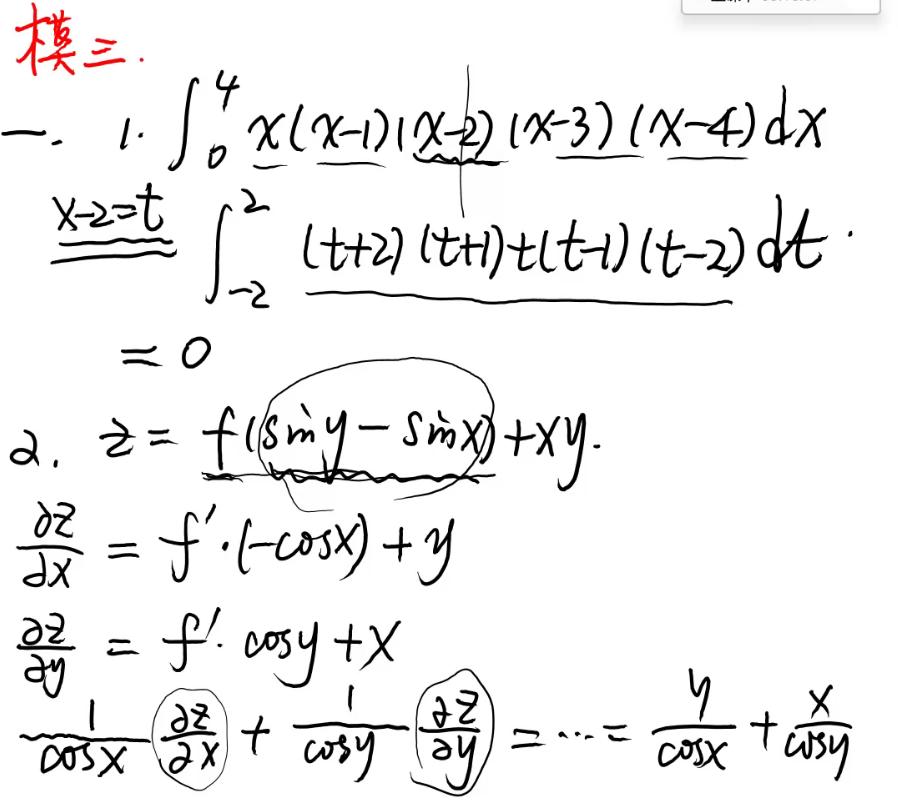 模三.
一. 1. ∫₀⁴ x(x-1)(x-2)(x-3)(x-4)dx
x-2=t ∫₋₂² (t+2)(t+1)t(t-1)(t-2)dt.
= 0
2. z = f(siny - sinx) + xy.
∂z/∂x = f′·(-cosx) + y
∂z/∂y = f′·cosy + x
1/cosx ∂z/∂x + 1/cosy ∂z/∂y = ··· = y/cosx + x/cosy